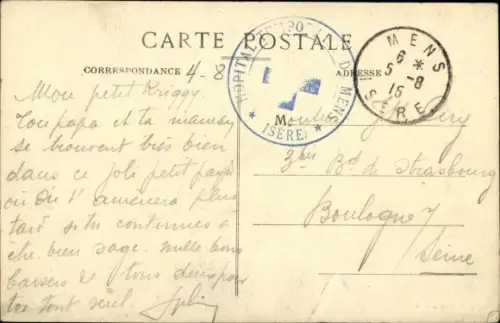 CARTE POSTALE
CORRESPONDANCE
ADRESSE
4-8
HOPITAL TEMPO DE MENS
(ISÈRE)
MENS
6 *
5-8
15
ISERE
Mon petit Kriggy.
Ton papa et ta maman
se trouvent très bien
dans ce joli petit pays
où on t'amènera plus
tard si tu continues à
être bien sage. Mille bons
baisers de tous deux pour
toi tout seul.
M
3 bis Bd de Strasbourg
Boulogne s/
Seine